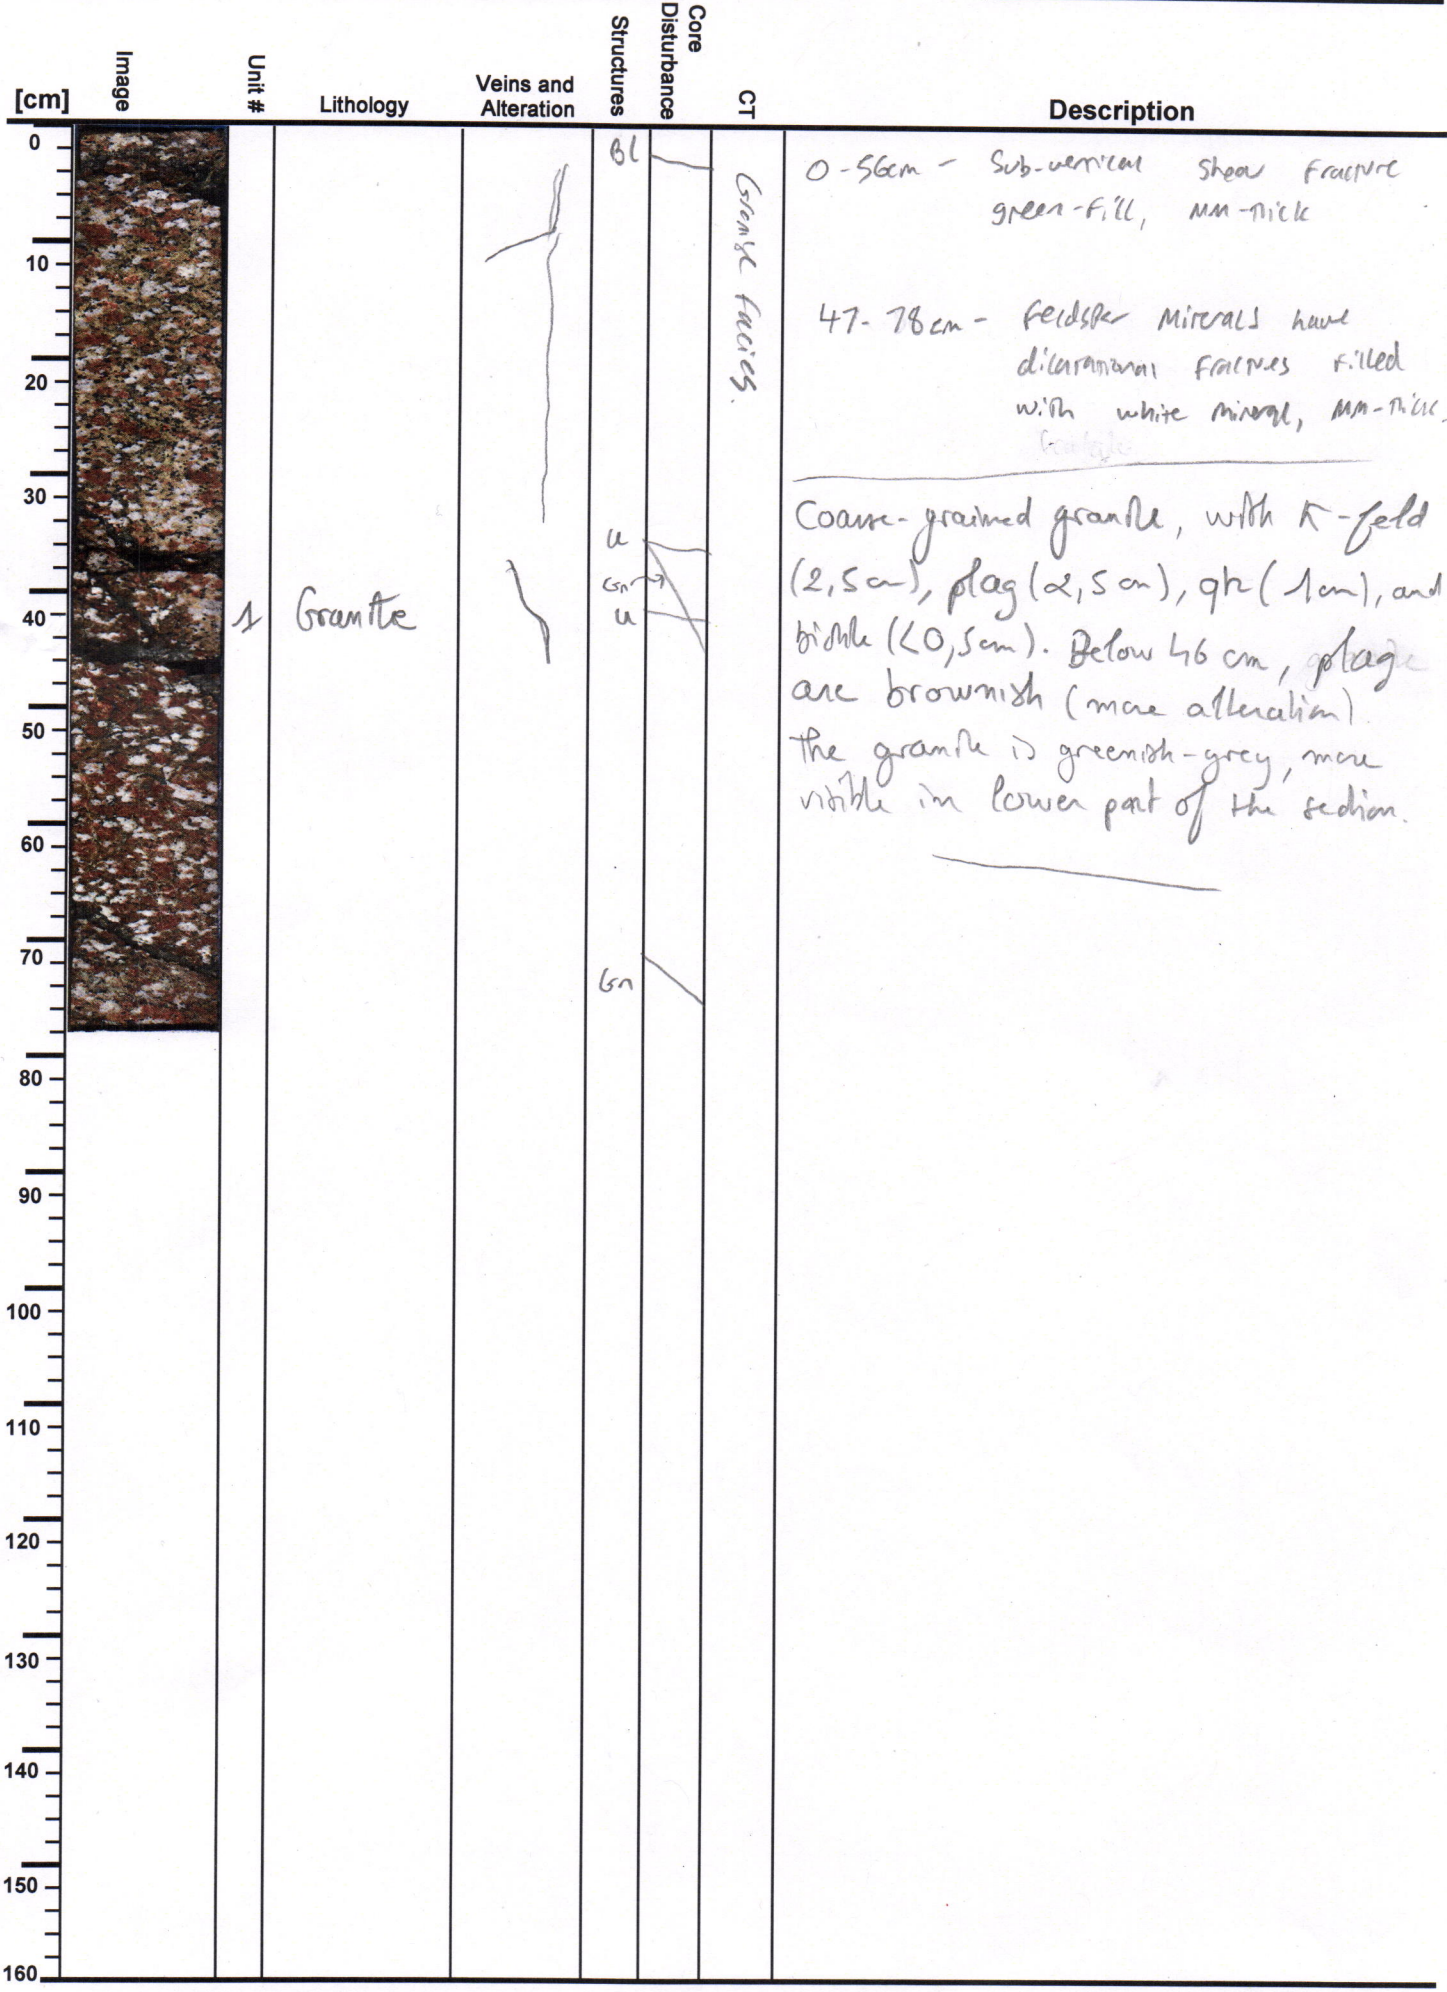 [cm]
Image
Unit #
Lithology
Veins and
Alteration
Structures
Core
Disturbance
CT
Description
0
10
20
30
40
50
60
70
80
90
100
110
120
130
140
150
160
1
Granite
Bl
u
Gn →
u
Gn
Granite facies.
0-56cm - Sub-vertical Shear Fracture
green-fill, MM-thick
47-78cm - Feldspar Minerals have
dilatational Fractures Filled
with white mineral, MM-thick.
Coarse-grained granite, with K-feld
(2,5 cm), plag (2,5 cm), qtz (1cm), and
biotite (<0,5cm). Below 46 cm, plag
are brownish (more alteration)
The granite is greenish-grey, more
visible in lower part of the section.